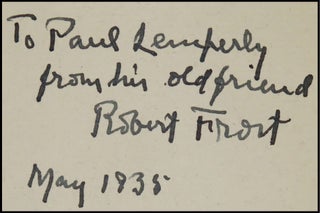 To Paul Lemperly
from his old friend
Robert Frost
May 1935